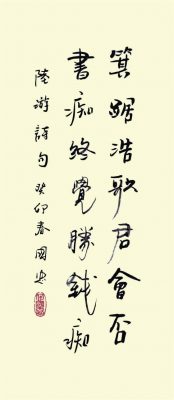 箕踞浩歌君會否
書痴終覺勝錢痴
陸游詩句 癸卯春國忠